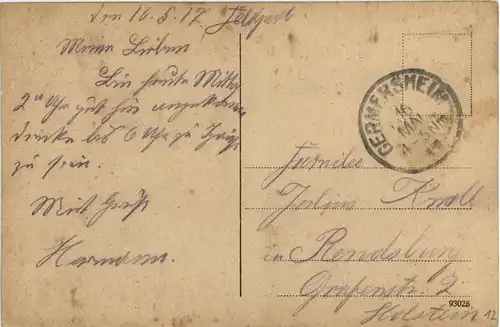 den 16.5.17 Feldpost
Meine Lieben
Bin heute Mittag
2 Uhr gut hier angekommen
denke bis 6 Uhr zu Hause
zu sein.
Mit Gruß
Hermann.
GERMERSHEIM
16
MAI
17
Familie
Julius Knoll
in Rendsburg
Grafenstr. 2
Holstein
93028
12